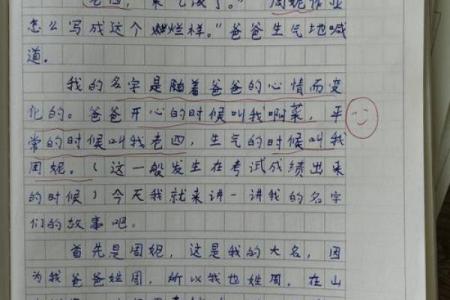 老四，来吃饭了。”“周妮作业
怎么写成这个样。”爸爸生气地喊
道。
我的名字是随着爸爸的心情而变
化的。爸爸开心的时候叫我啊菜，平
常的时候叫我老四，生气的时候叫我
周妮。（这一般发生在考试成绩出来
的时候）今天我就来讲一讲我的名字
们的故事吧。
首先是周妮，这是我的大名，因
为我爸爸姓周，所以我也姓周，在山